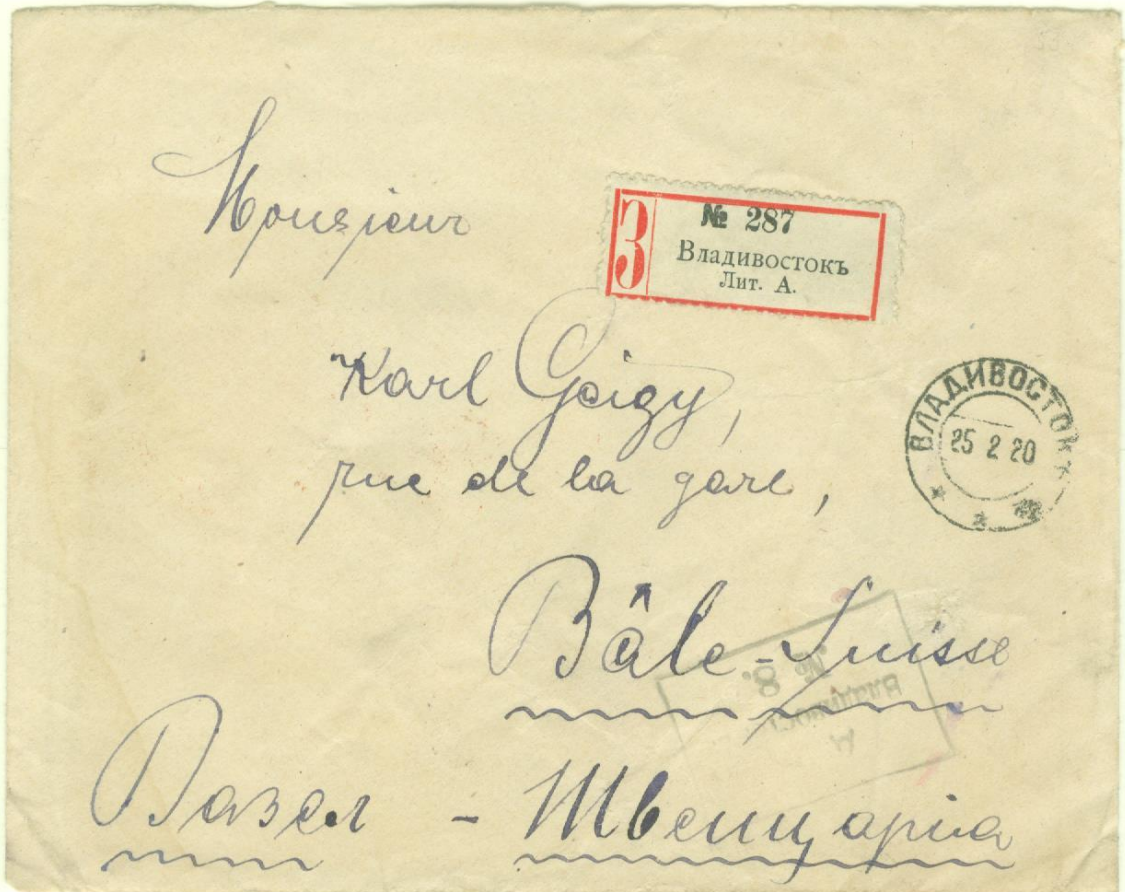 Monsieur
З
№ 287
Владивостокъ
Лит. А.
Karl Geigy,
rue de la gare,
ВЛАДИВОСТОК
25 2 20
Bâle - Suisse
№ 8.
Базел - Швейцарiа